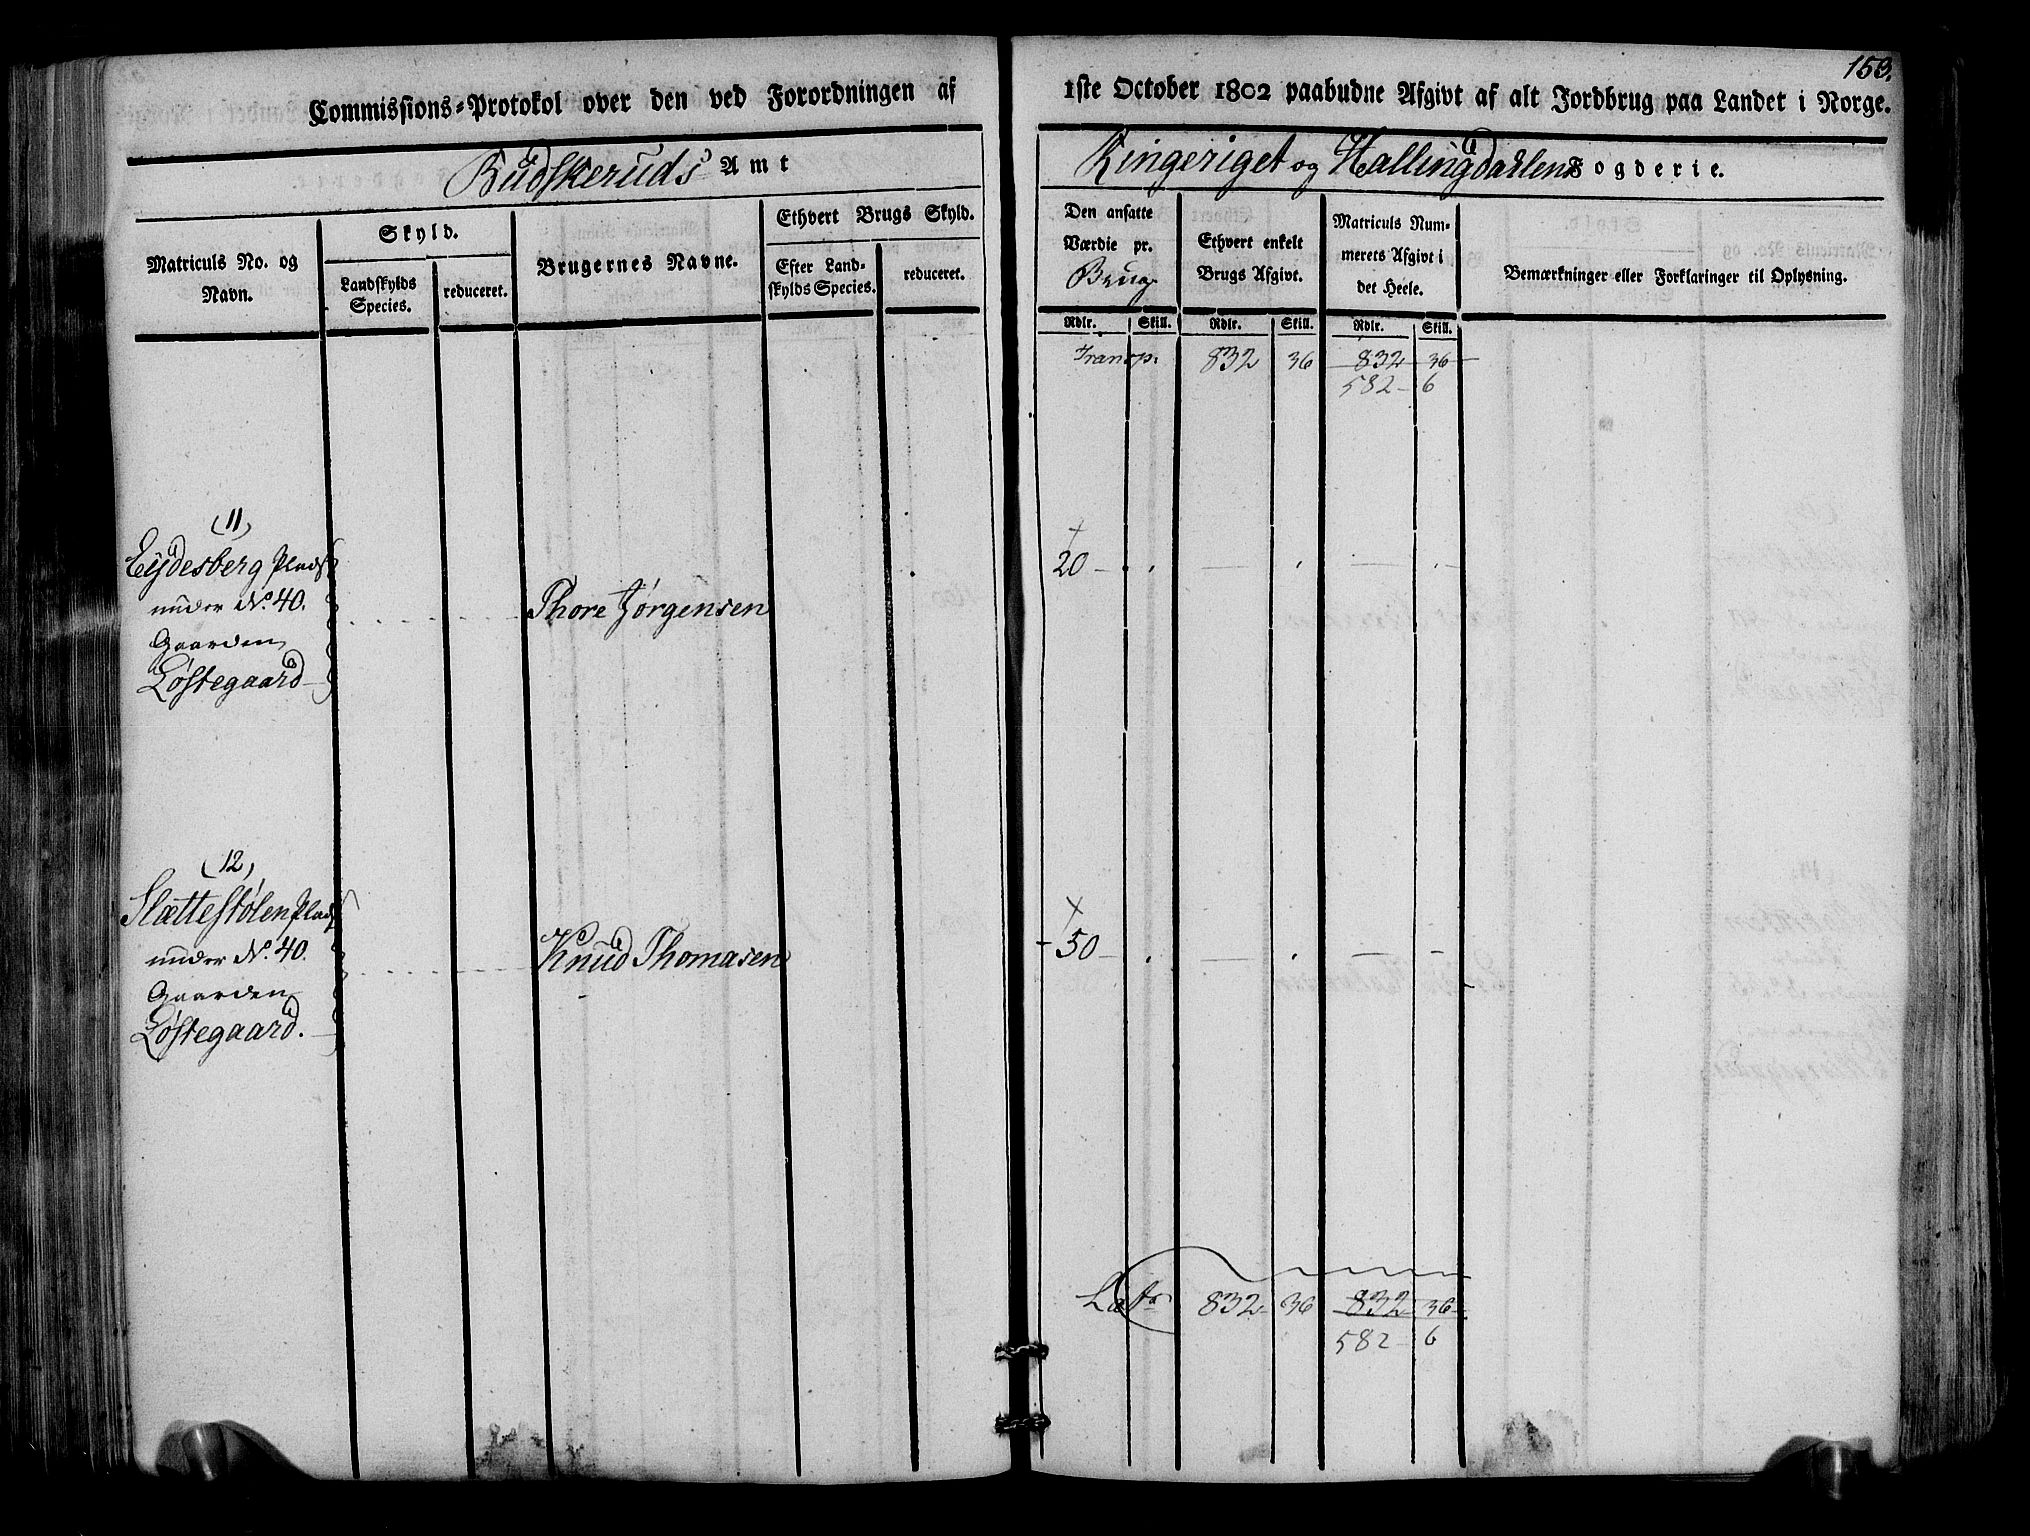 153.
Commissions-Protokol over den ved Forordningen af 1ste October 1802 paabudne Afgivt af alt Jordbrug paa Landet i Norge.
Budskeruds Amt
Ringeriget og Hallingdahlens Fogderie.
Matriculs No. og Navn.
Skyld.
Landskylds Species.
reduceret.
Brugernes Navne.
Ethvert Brugs Skyld.
Efter Landskylds Species.
reduceret.
Den ansatte Værdie pr. Brug
Ethvert enkelt Brugs Afgivt.
Matriculs Nummerets Afgivt i det Heele.
Bemærkninger eller Forklaringer til Oplysning.
Rdlr. Skill. Rdlr. Skill. Rdlr. Skill.
Transp. 832 36 832 36
582 6
(11)
Eydesberg Plads
under No. 40.
Gaarden
Løstegaard
Thore Jørgensen
20
(12)
Slættestølen Plads
under No. 40.
Gaarden
Løstegaard.
Knud Thomasen
50
Lat 832 36 832 36
582 6